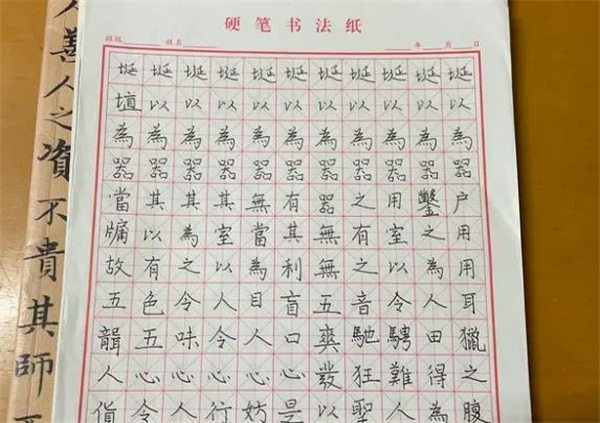 善人之資不貴其師
硬笔书法纸
班级 姓名 年 月 日
埏埏埏埏埏埏埏埏埏埏埏
埴以以以以以以以以以以
為為為為為為為為為為為
器器器器器器器器器器器
當其其其無有器之用鑿户
牖以為室當其無有室之用
故有之以為利無之以為用
五色令人目盲五音令人耳
聾五味令人口爽馳騁田獵
人心心令心心發狂難得之
貨令人行妨是以聖人為腹